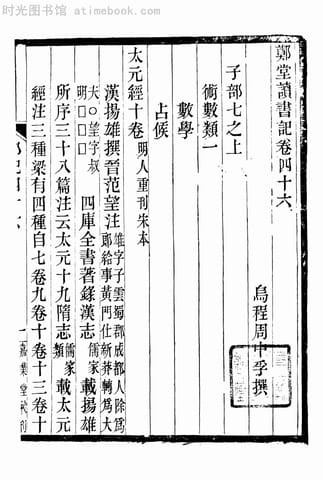 时光图书馆 - atimebook.com
鄭堂讀書記卷四十六
烏程周中孚撰
子部七之上
術數類一
數學
占候
太元經十卷明人重刊宋本
漢揚雄撰晉范望注雄字子雲蜀郡成都人除為
郎給事黃門仕新莽轉為大
夫○望字叔
明○○○○四庫全書著錄漢志儒家載揚雄
所序三十八篇注云太元十九隋志儒家類載太元
經注三種梁有四種自七卷九卷十卷十三卷十
一嘉業堂